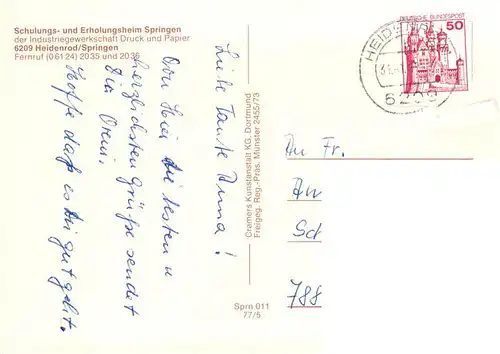 Schulungs- und Erholungsheim Springen
der Industriegewerkschaft Druck und Papier
6209 Heidenrod/Springen
Fernruf (0 61 24) 20 35 und 20 36
Liebe Tante Anna!
Von hier die besten u
herzlichsten Grüße sendet
Dir Omi.
Hoffe daß es Dir gut geht.
Cramers Kunstanstalt KG, Dortmund
Freigeg. Reg.-Präs. Münster 2455/73
Sprn 011
77/5
DEUTSCHE BUNDESPOST
50
HEIDEN
31.-
6209
An Fr.
An
Sch
788